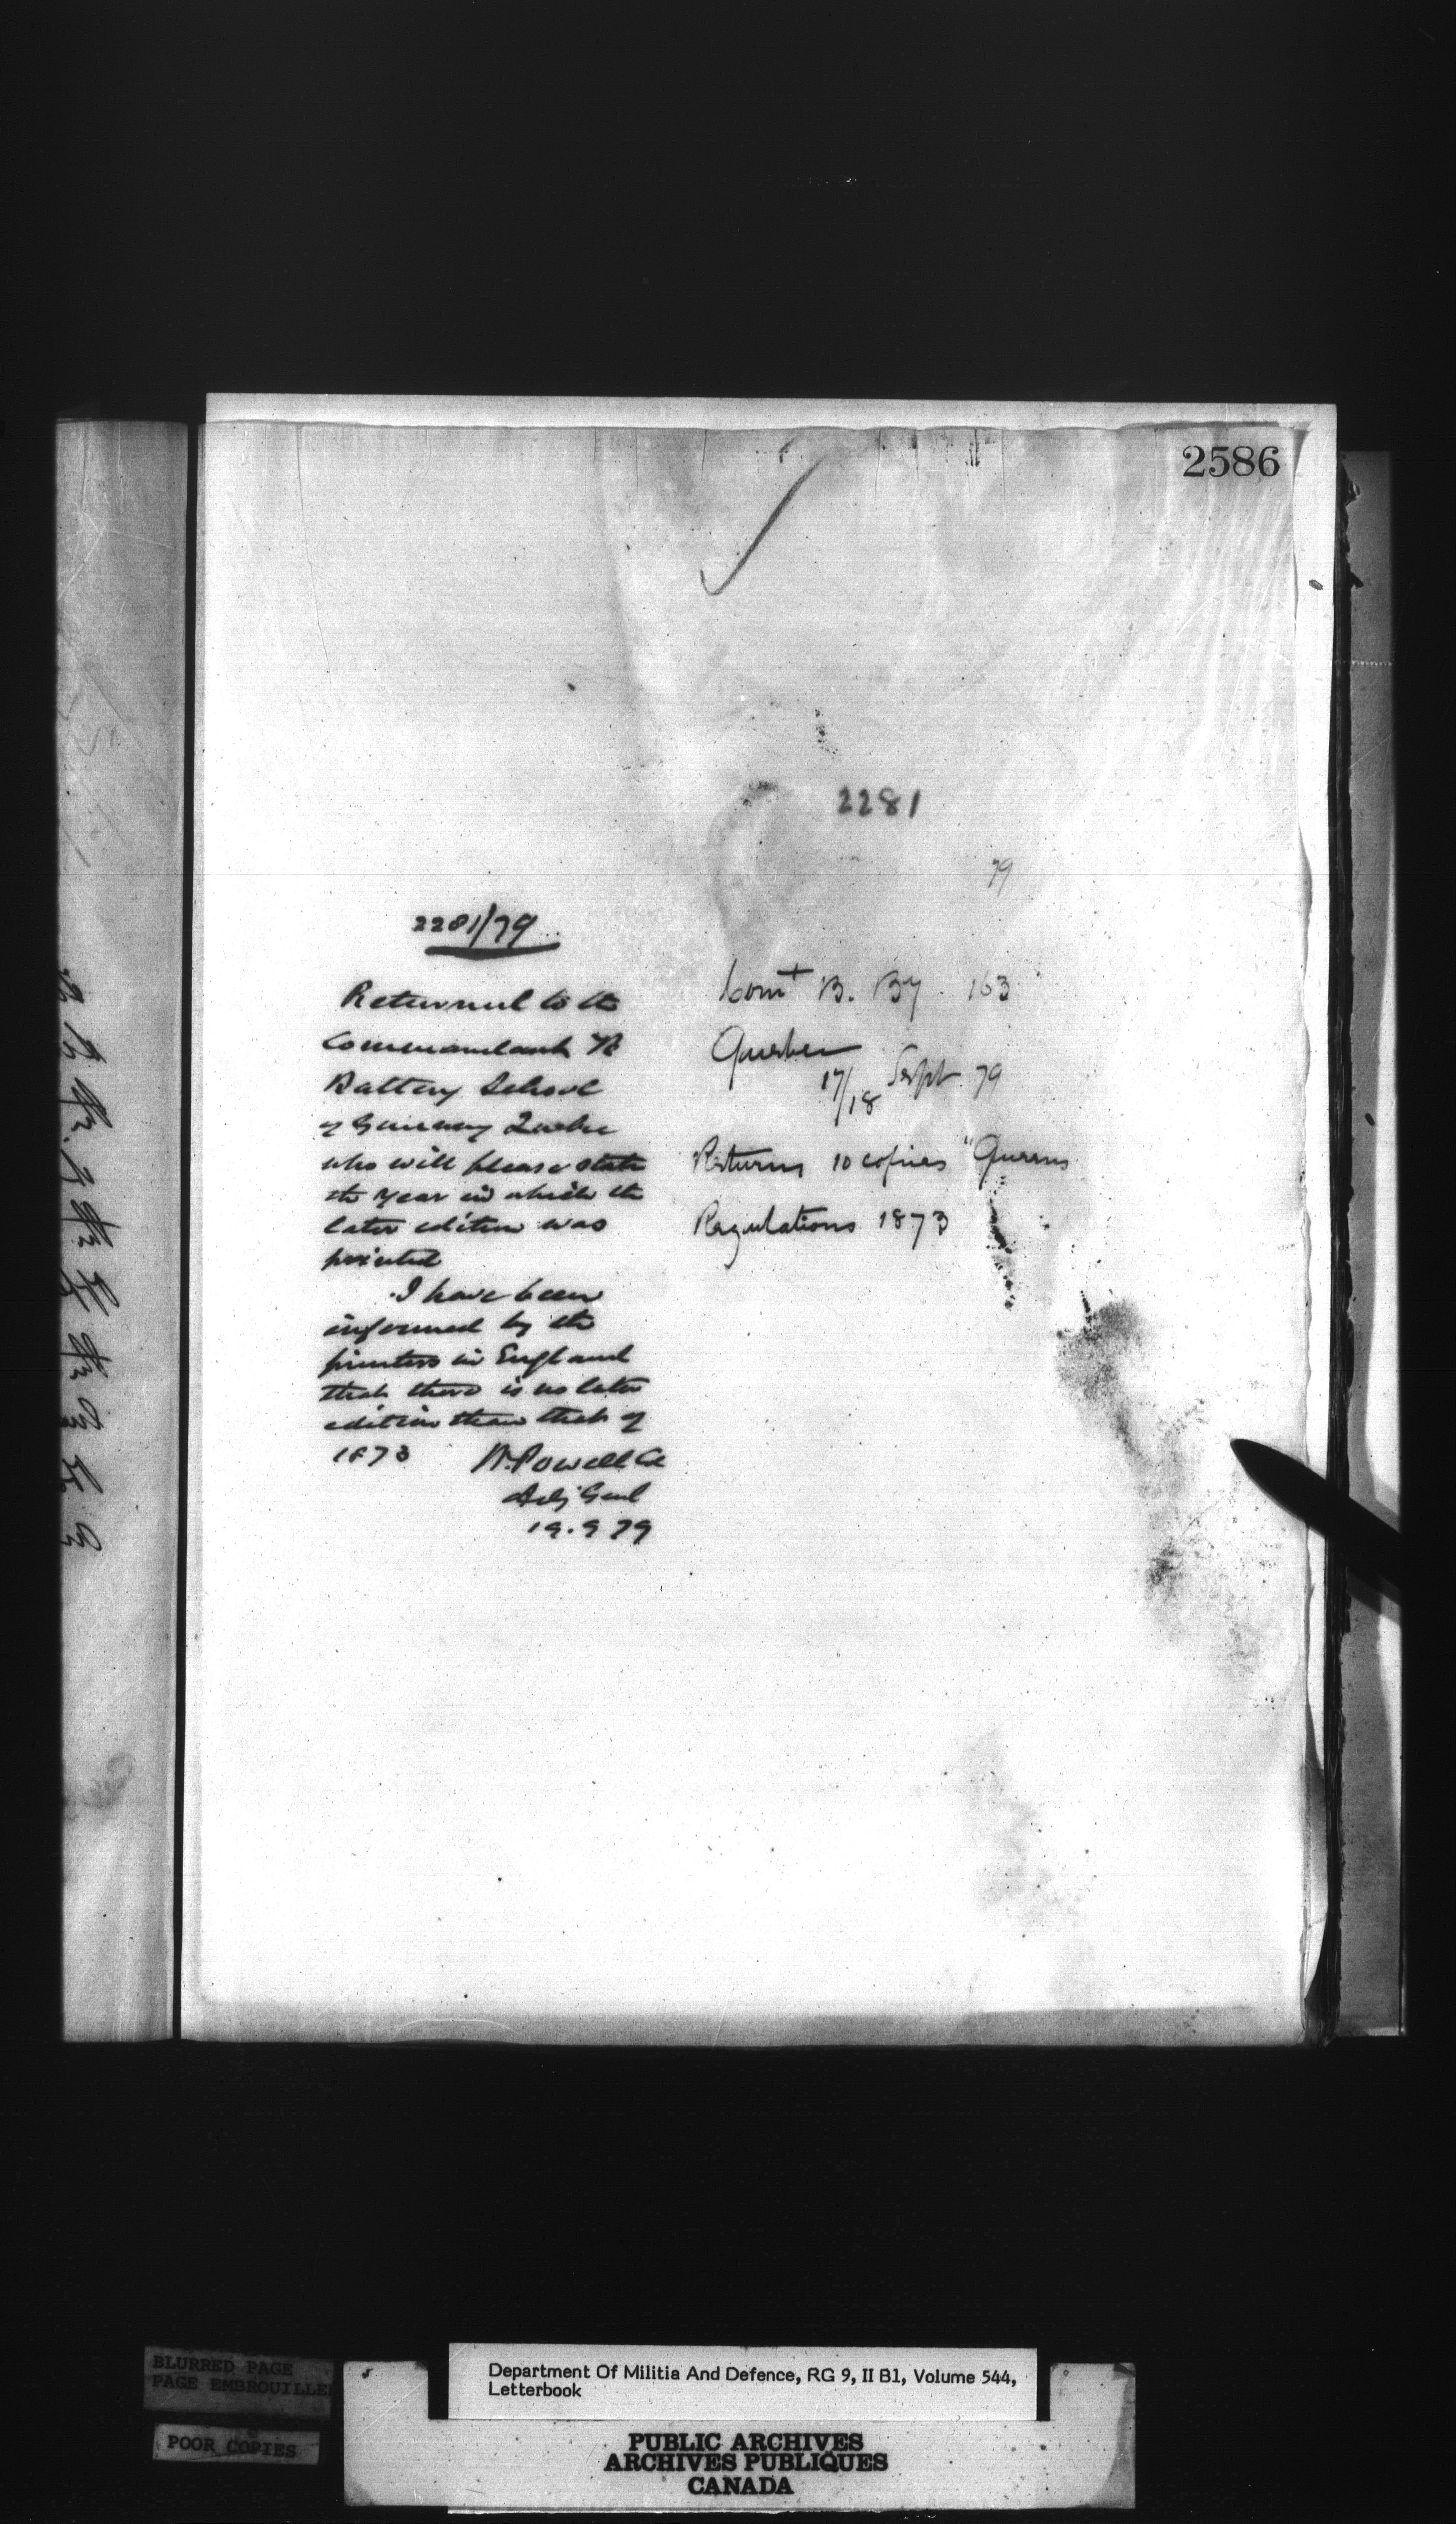 2586
2281
79
2281/79
Returned to the
Commandant "B"
Battery School
of Gunnery Quebec
who will please state
the year in which the
later edition was
printed
I have been
informed by the
printers in England
that there is no later
edition than that of
1873 W. Powell Col
Adj Genl
19.9.79
Comt B. By. 163
Quebec
17/18 Sept 79
Returns 10 copies "Queens
Regulations 1873
BLURRED PAGE
PAGE EMBROUILLEE
POOR COPIES
Department Of Militia And Defence, RG 9, II B1, Volume 544,
Letterbook
PUBLIC ARCHIVES
ARCHIVES PUBLIQUES
CANADA